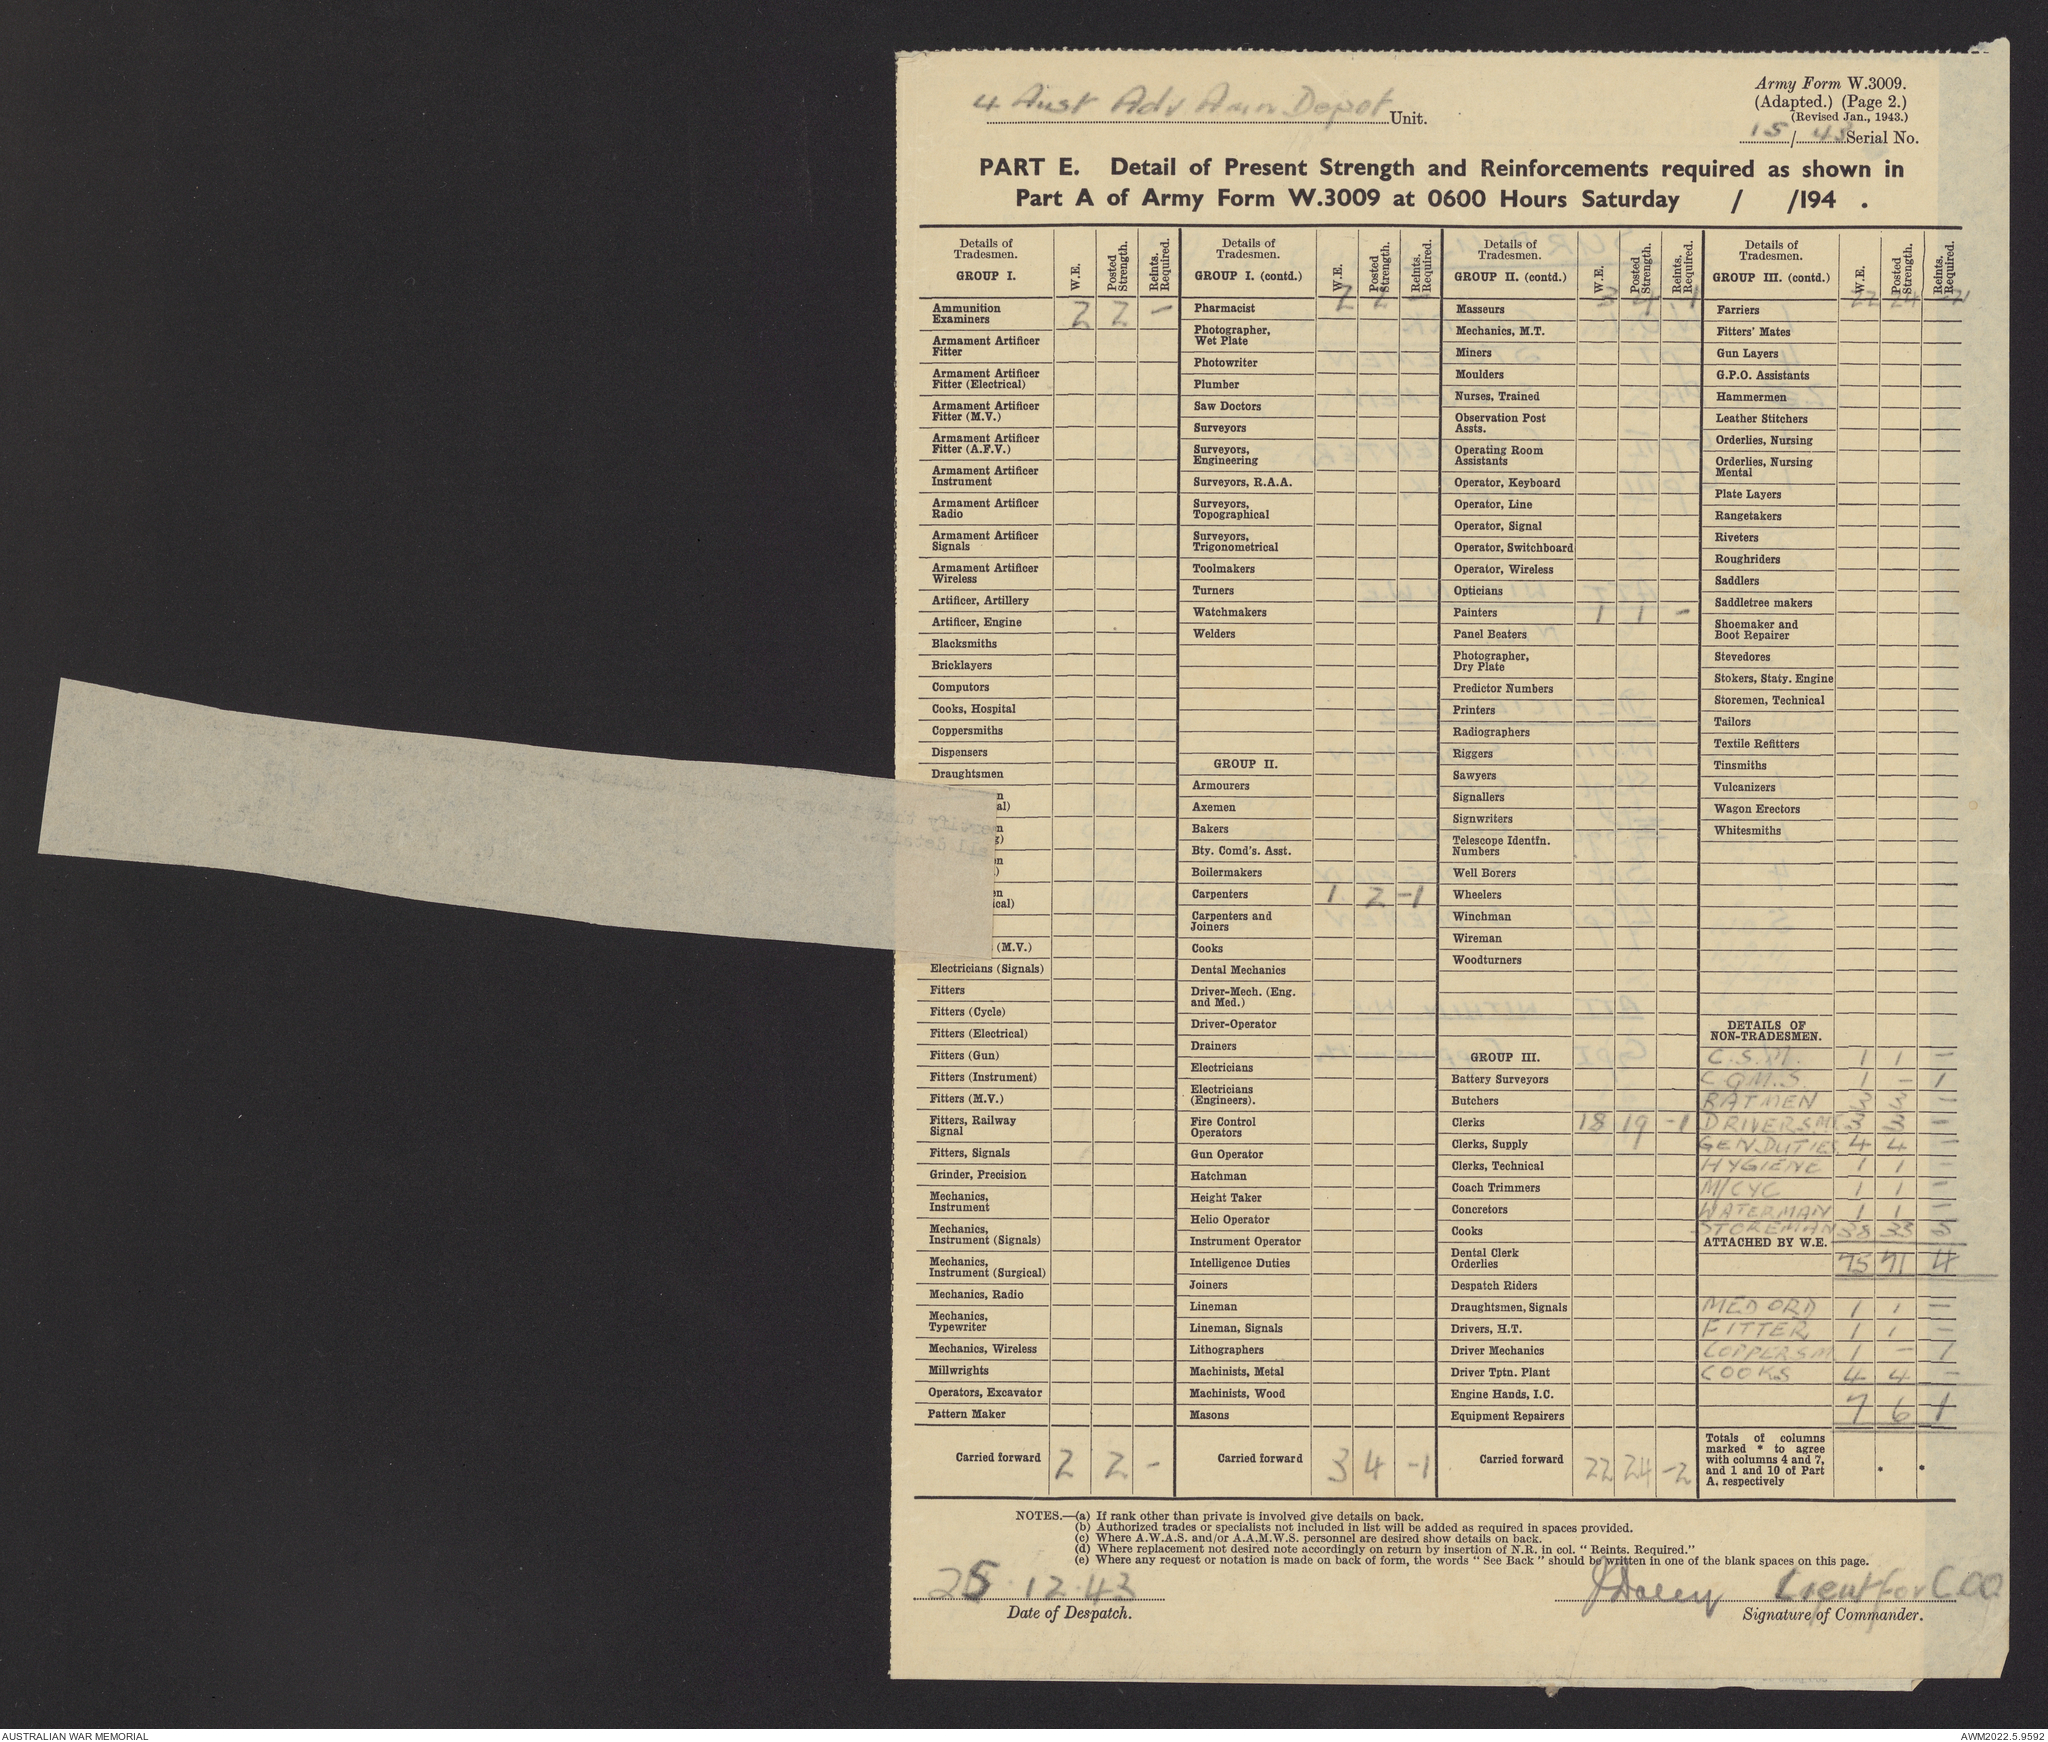 Army Form W.3009.
(Adapted.) (Page 2.)
(Revised Jan., 1943.)
4 Aust Adv Amn Depot Unit.
15/43 Serial No.
PART E. Detail of Present Strength and Reinforcements required as shown in
Part A of Army Form W.3009 at 0600 Hours Saturday / /194 .
Details of Tradesmen. GROUP I. W.E. Posted Strength. Reints. Required.
Ammunition Examiners 2 2 -
Armament Artificer Fitter
Armament Artificer Fitter (Electrical)
Armament Artificer Fitter (M.V.)
Armament Artificer Fitter (A.F.V.)
Armament Artificer Instrument
Armament Artificer Radio
Armament Artificer Signals
Armament Artificer Wireless
Artificer, Artillery
Artificer, Engine
Blacksmiths
Bricklayers
Computors
Cooks, Hospital
Coppersmiths
Dispensers
Draughtsmen
(M.V.)
Electricians (Signals)
Fitters
Fitters (Cycle)
Fitters (Electrical)
Fitters (Gun)
Fitters (Instrument)
Fitters (M.V.)
Fitters, Railway Signal
Fitters, Signals
Grinder, Precision
Mechanics, Instrument
Mechanics, Instrument (Signals)
Mechanics, Instrument (Surgical)
Mechanics, Radio
Mechanics, Typewriter
Mechanics, Wireless
Millwrights
Operators, Excavator
Pattern Maker
Carried forward 2 2 -
Details of Tradesmen. GROUP I. (contd.) W.E. Posted Strength. Reints. Required.
2 2 -
Pharmacist
Photographer, Wet Plate
Photowriter
Plumber
Saw Doctors
Surveyors
Surveyors, Engineering
Surveyors, R.A.A.
Surveyors, Topographical
Surveyors, Trigonometrical
Toolmakers
Turners
Watchmakers
Welders
GROUP II.
Armourers
Axemen
Bakers
Bty. Comd's. Asst.
Boilermakers
Carpenters 1 2 -1
Carpenters and Joiners
Cooks
Dental Mechanics
Driver-Mech. (Eng. and Med.)
Driver-Operator
Drainers
Electricians
Electricians (Engineers).
Fire Control Operators
Gun Operator
Hatchman
Height Taker
Helio Operator
Instrument Operator
Intelligence Duties
Joiners
Lineman
Lineman, Signals
Lithographers
Machinists, Metal
Machinists, Wood
Masons
Carried forward 3 4 -1
Details of Tradesmen. GROUP II. (contd.) W.E. Posted Strength. Reints. Required.
3 4 -1
Masseurs
Mechanics, M.T.
Miners
Moulders
Nurses, Trained
Observation Post Assts.
Operating Room Assistants
Operator, Keyboard
Operator, Line
Operator, Signal
Operator, Switchboard
Operator, Wireless
Opticians
Painters 1 1 -
Panel Beaters
Photographer, Dry Plate
Predictor Numbers
Printers
Radiographers
Riggers
Sawyers
Signallers
Signwriters
Telescope Identfn. Numbers
Well Borers
Wheelers
Winchman
Wireman
Woodturners
GROUP III.
Battery Surveyors
Butchers
Clerks 18 19 -1
Clerks, Supply
Clerks, Technical
Coach Trimmers
Concretors
Cooks
Dental Clerk Orderlies
Despatch Riders
Draughtsmen, Signals
Drivers, H.T.
Driver Mechanics
Driver Tptn. Plant
Engine Hands, I.C.
Equipment Repairers
Carried forward 22 24 -2
Details of Tradesmen. GROUP III. (contd.) W.E. Posted Strength. Reints. Required.
22 24 -2
Farriers
Fitters' Mates
Gun Layers
G.P.O. Assistants
Hammermen
Leather Stitchers
Orderlies, Nursing
Orderlies, Nursing Mental
Plate Layers
Rangetakers
Riveters
Roughriders
Saddlers
Saddletree makers
Shoemaker and Boot Repairer
Stevedores
Stokers, Staty. Engine
Storemen, Technical
Tailors
Textile Refitters
Tinsmiths
Vulcanizers
Wagon Erectors
Whitesmiths
DETAILS OF NON-TRADESMEN.
C.S.M. 1 1 -
CQM.S. 1 - 1
BATMEN 3 3
DRIVERS MT 3 3 -
GEN. DUTIES 4 4 -
HYGIENE 1 1 -
M/CYC 1 1 -
WATERMAN 1 1 -
STOREMAN 38 33 5
ATTACHED BY W.E.
75 71 4
MED ORD 1 1 -
FITTER 1 1 -
COPPERSM. 1 - 1
COOKS 4 4 -
7 6 1
Totals of columns marked * to agree with columns 4 and 7, and 1 and 10 of Part A, respectively * *
NOTES.—(a) If rank other than private is involved give details on back.
(b) Authorized trades or specialists not included in list will be added as required in spaces provided.
(c) Where A.W.A.S. and/or A.A.M.W.S. personnel are desired show details on back.
(d) Where replacement not desired note accordingly on return by insertion of N.R. in col. "Reints. Required."
(e) Where any request or notation is made on back of form, the words "See Back" should be written in one of the blank spaces on this page.
25.12.43
Date of Despatch.
Lieut for C.O.O
Signature of Commander.
AUSTRALIAN WAR MEMORIAL
AWM2022.5.9592